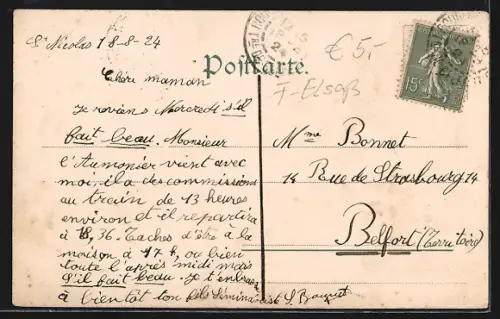 St Nicolas 18-8-24
Chère maman
Je reviens Mercredi s'il
fait beau. Monsieur
l'Aumonier vient avec
moi, il a des commissions
au train de 13 heures
environ et il repartira
à 18,36. Taches d'être à la
maison à 17 h, ou bien
toute l'après midi mais
s'il fait beau. Je t'embrasse
à bientôt ton fils séminariste
Postkarte.
€ 5,-
F-Elsaß
15c
Mme Bonnet
14 Rue de Strasbourg 14
Belfort (Territoire)